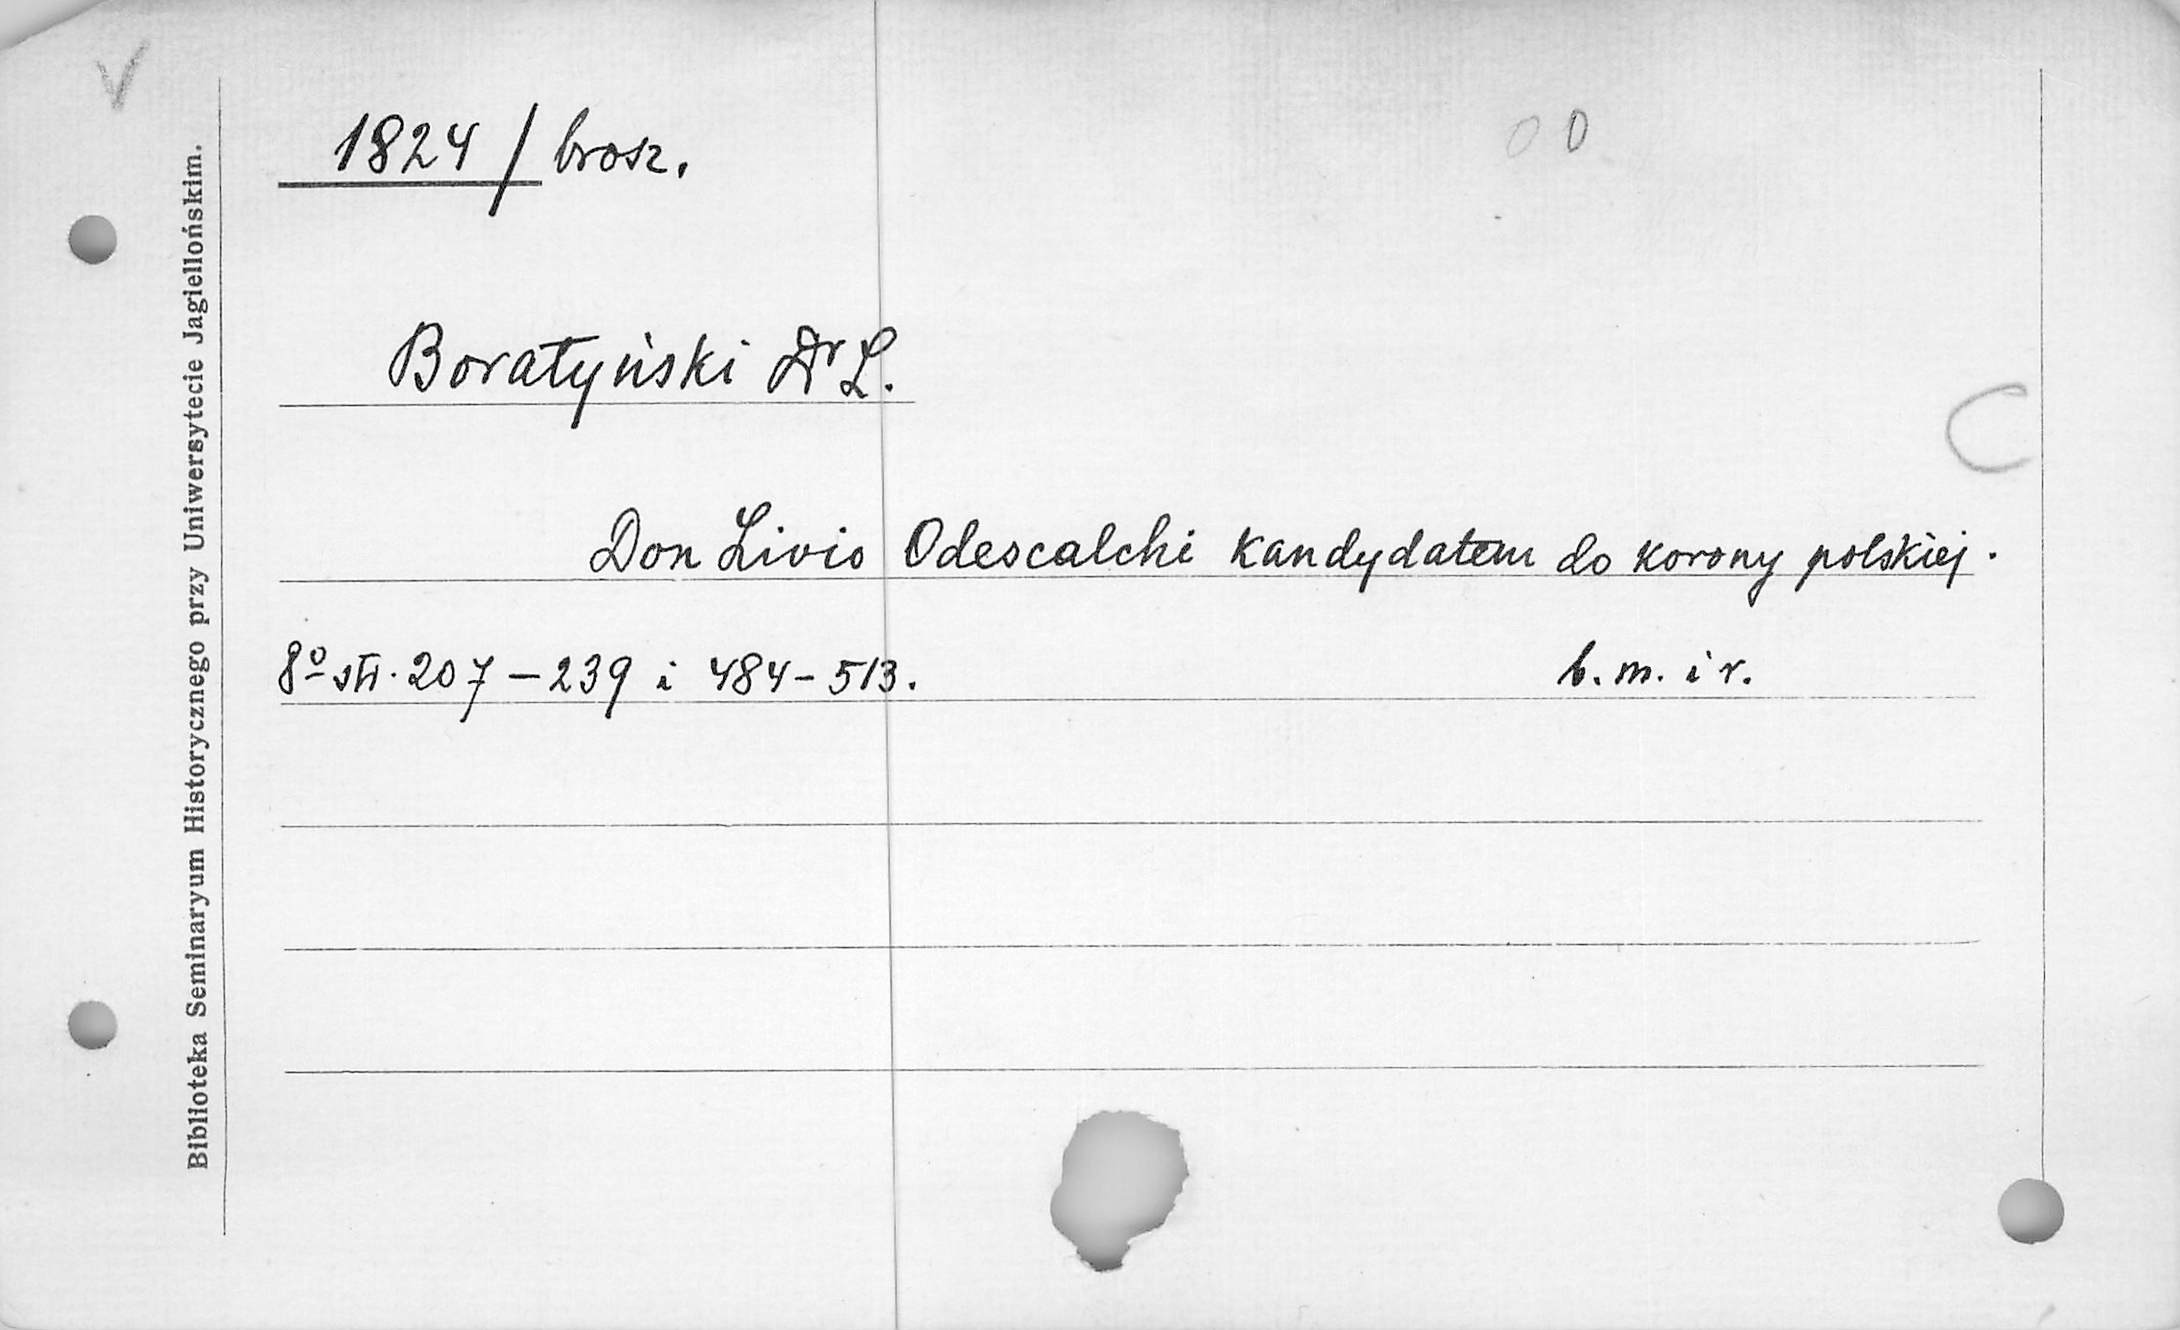 V
1824 / brosz.
O O
Boratyński Dr L.
C
Don Livio Odescalchi kandydatem do korony polskiej.
8º str. 207 – 239 i 484 – 513. b. m. i r.
Biblioteka Seminaryum Historycznego przy Uniwersytecie Jagiellońskim.